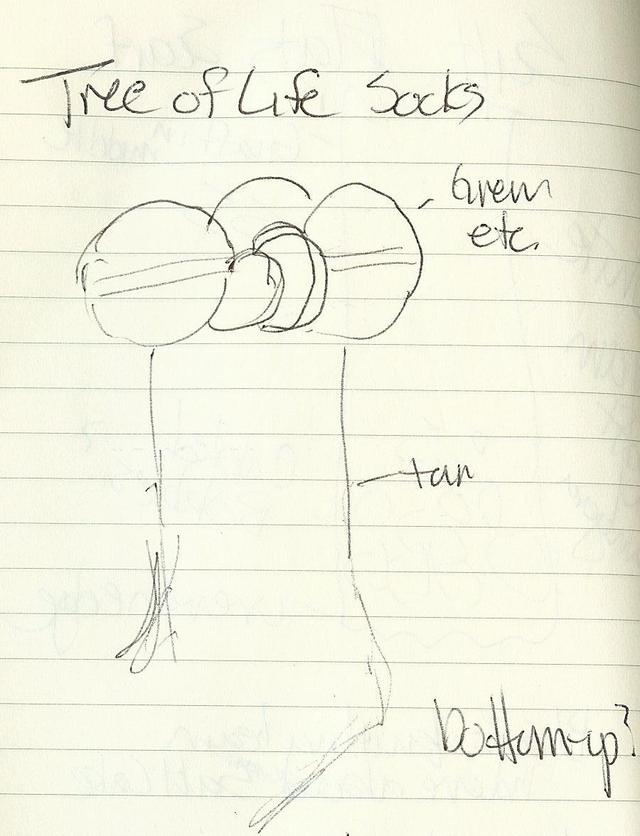 Tree of Life Socks
Green
etc.
tan
bottom-up?